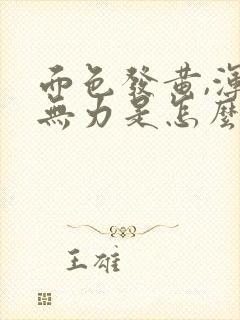 面色發黃,渾
無力是怎麼
王雄